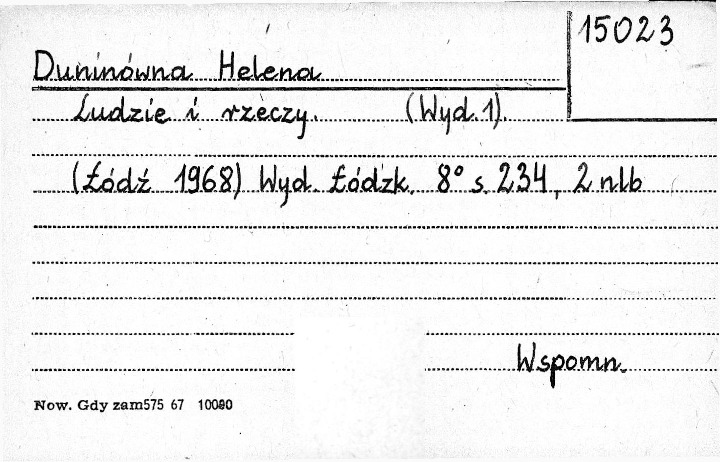 15023
Duninówna Helena
Ludzie i rzeczy. (Wyd. 1).
(Łódź 1968) Wyd. Łódzk. 8° s. 234, 2 nlb
Wspomn.
Now. Gdy zam575 67 10000